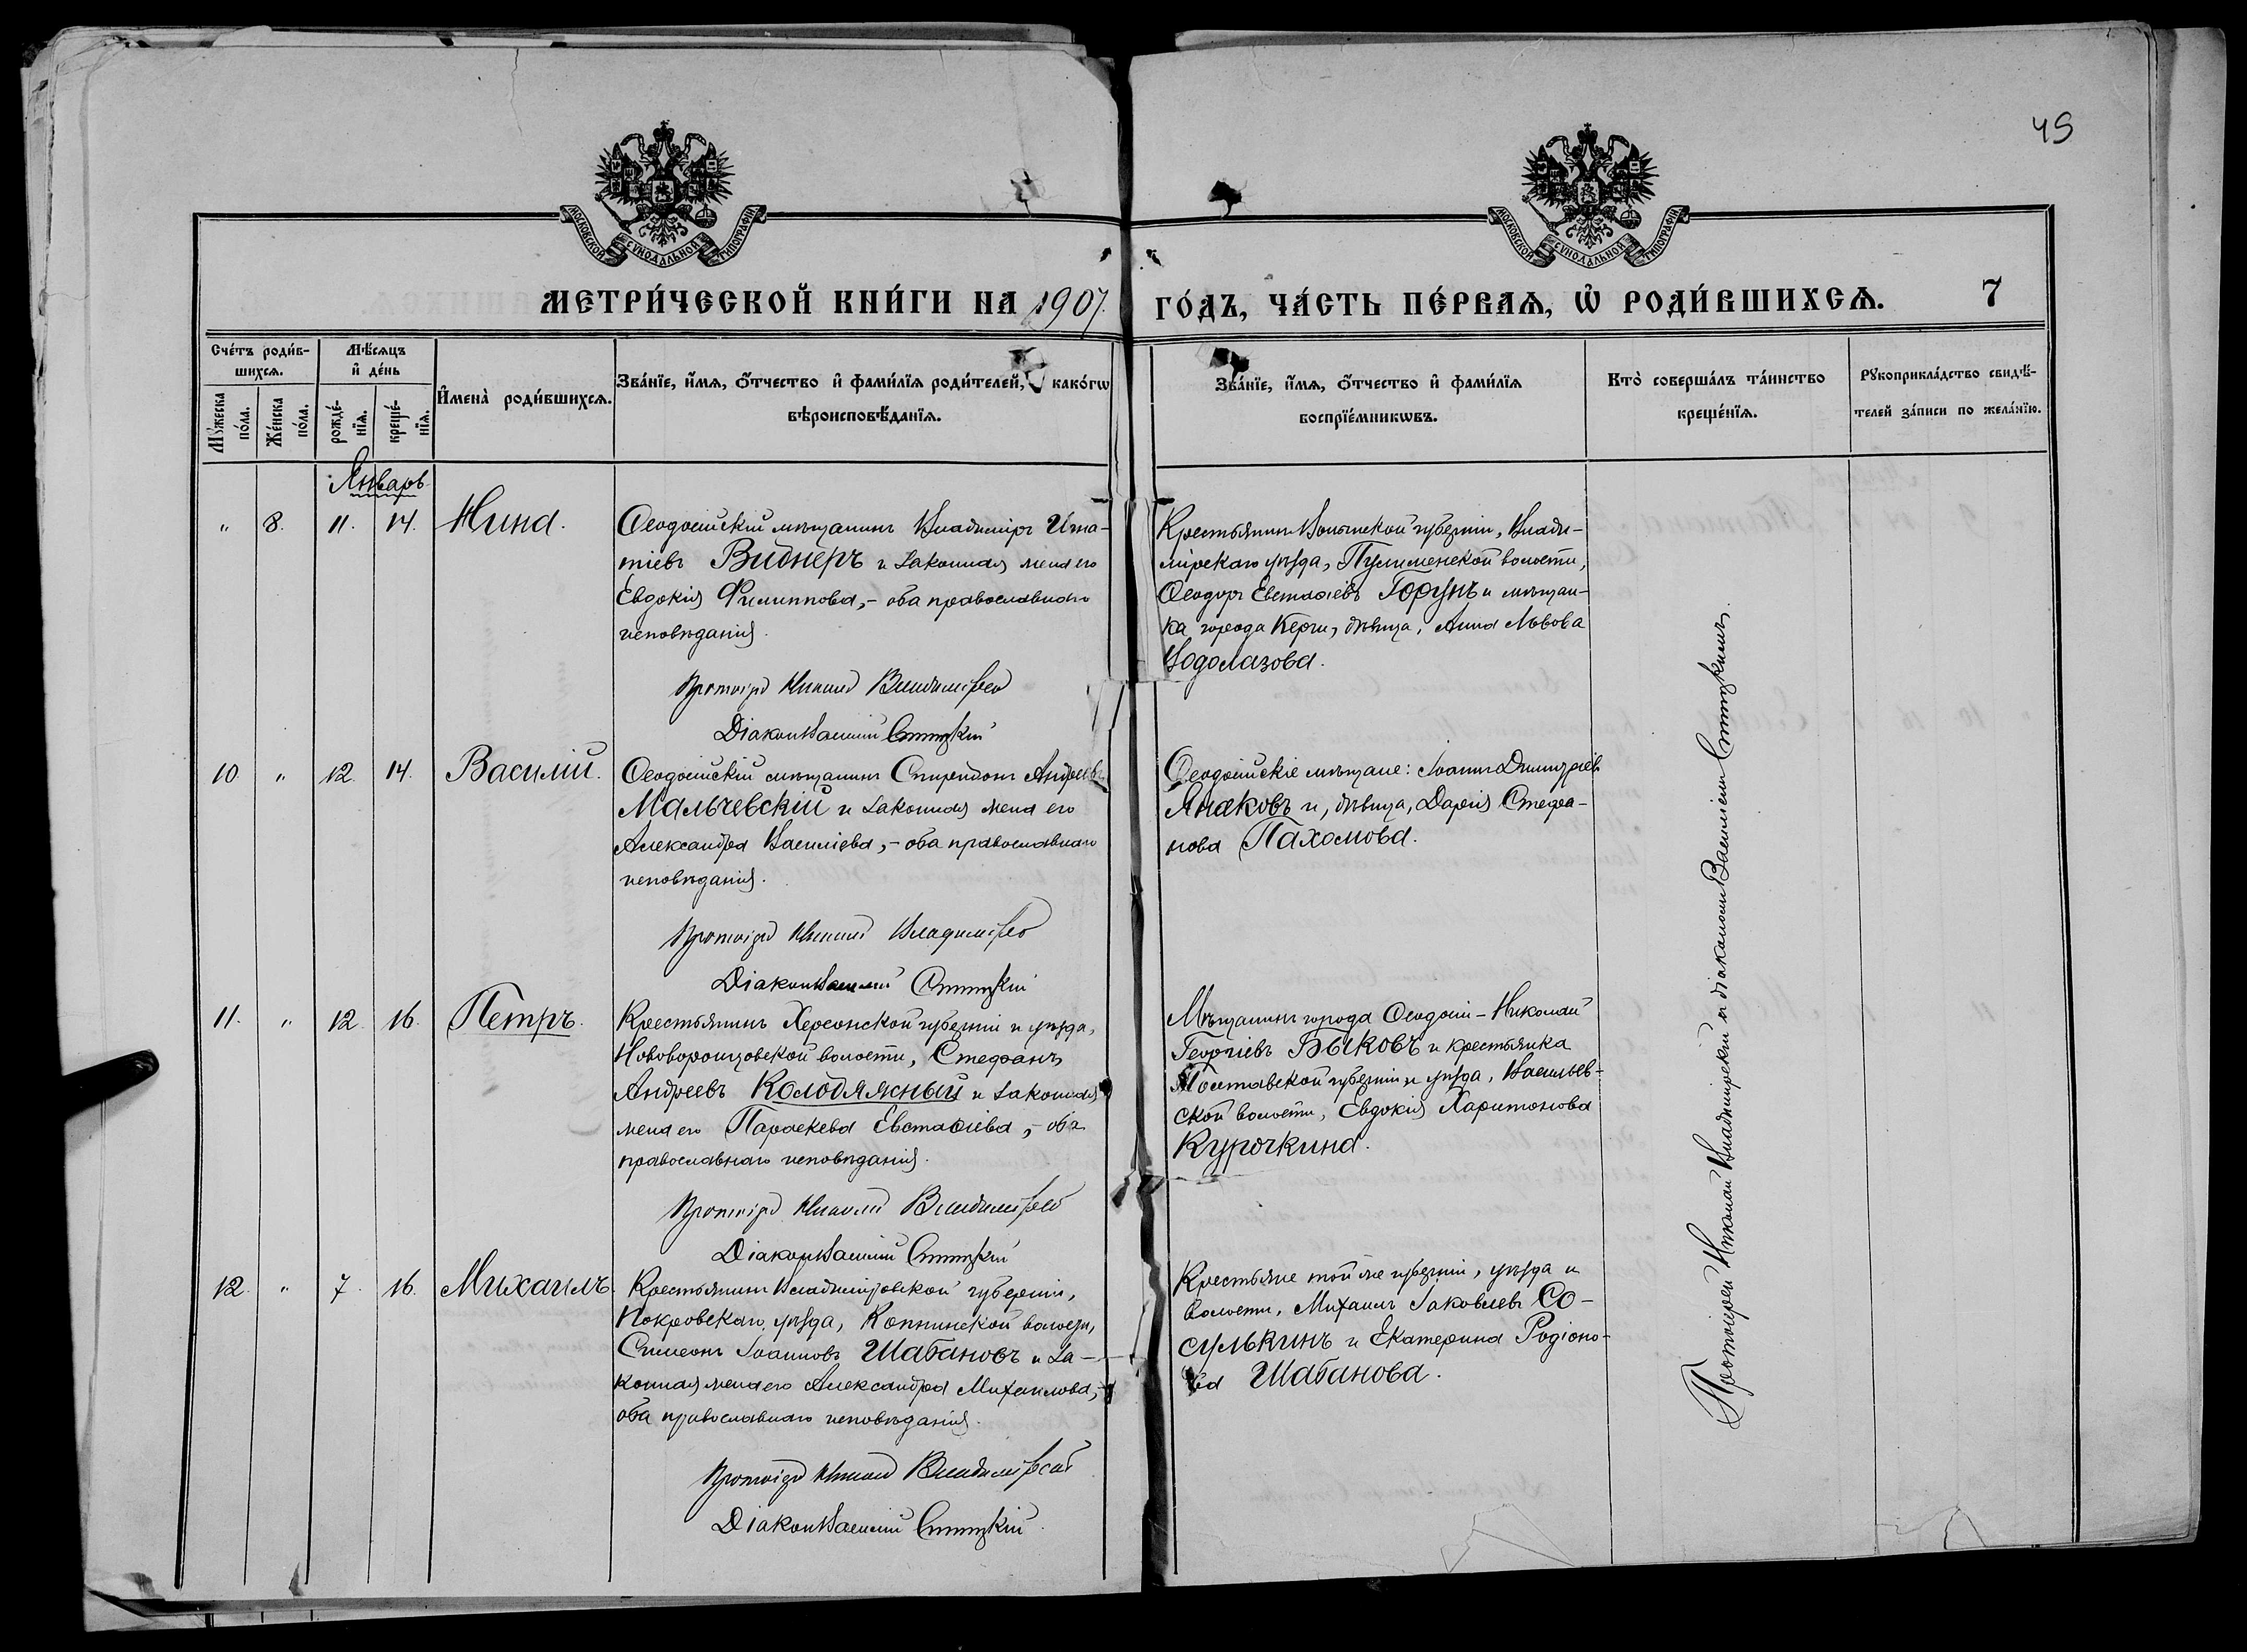 45
МОСКОВСКОЙ СѴНОДАЛЬНОЙ ТИПОГРАФІИ
МОСКОВСКОЙ СѴНОДАЛЬНОЙ ТИПОГРАФІИ
МЕТРИ́ЧЕСКОЙ КНИ́ГИ НА 1907. ГО́ДЪ, ЧА́СТЬ ПЕ́РВАѦ, Ѡ҆ РОДИ́ВШИХСѦ. 7
Сче́тъ роди́в-
шихсѧ.
Мѣ́сѧцъ
и҆ де́нь
Мꙋ́жеска по́ла.
Же́нска по́ла.
рожде́-
нїѧ.
креще́-
нїѧ.
И҆мена̀ роди́вшихсѧ.
Зва́нїе, и҆́мѧ, ѻ҆́тчество и҆ фами́лїѧ роди́телей, и҆ како́гѡ
вѣроисповѣ́данїѧ.
Зва́нїе, и҆́мѧ, ѻ҆́тчество и҆ фами́лїѧ
воспрїе́мникѡвъ.
Кто̀ соверша́лъ та́инство
креще́нїѧ.
Рꙋкоприкла́дство свидѣ́-
телей за́писи по жела́нїю.
Январь
„ 8. 11. 14. Нина.
Ѳеодосійскій мѣщанинъ Владиміръ Игна-
тіевъ Виднеръ и законная жена его
Евдокія Филиппова, – оба православнаго
исповѣданія.
Протоіерей Николай Владимірскій
Діаконъ Василій Ститзкій
Крестьянинъ Волынской губерніи, Влади-
мірскаго уѣзда, Пулеменской волости,
Ѳеодоръ Евстаѳіевъ Горунъ и мѣщан-
ка города Керчи, дѣвица, Анна Львова
Водолазова.
10. „ 12. 14. Василій.
Ѳеодосійскій мѣщанинъ Спиридонъ Андреевъ
Мальчевскій и законная жена его
Александра Василіева, – оба православнаго
исповѣданія.
Протоіерей Николай Владимірскій
Діаконъ Василій
Ѳеодосійскіе мѣщане: Іоаннъ Димитріевъ
Анаковъ и, дѣвица, Дарія Стефа-
нова Пахомова.
11. „ 12. 16. Петръ.
Крестьянинъ Херсонской губерніи и уѣзда,
Нововоронцовской волости, Стефанъ
Андреевъ Колодяжный и законная
жена его Параскева Евстаѳіева, – оба
православнаго исповѣданія.
Протоіерей Николай Владимірскій
Діаконъ Василій
Мѣщанинъ города Ѳеодосіи – Николай
Георгіевъ Быковъ и крестьянка
Полтавской губерніи и уѣзда, Васильев-
ской волости, Евдокія Харитонова
Курочкина.
12. „ 7. 16. Михаилъ.
Крестьянинъ Владимірской губерніи,
Покровскаго уѣзда, Копнинской волости,
Симеонъ Іоанновъ Шабановъ и за-
конная жена его Александра Михаилова, –
оба православнаго исповѣданія.
Протоіерей Николай Владимірскій
Діаконъ Василій
Крестьяне той же губерніи, уѣзда и
волости, Михаилъ Іаковлевъ Со-
сулькинъ и Екатерина Родіоно-
ва Шабанова.
Протоіерей Николай Владимірскій и діакономъ Василіемъ